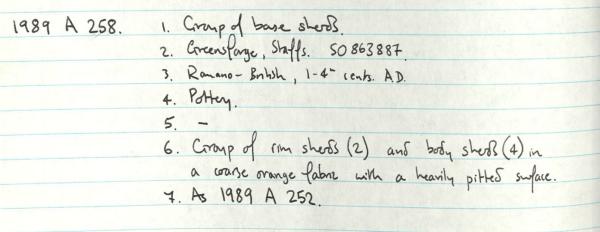 1989 A 258. 1. Group of base sherds.
2. Greensforge, Staffs. SO 863887.
3. Romano-British, 1-4th cents. AD.
4. Pottery.
5. -
6. Group of rim sherds (2) and body sherds (4) in
a coarse orange fabric with a heavily pitted surface.
7. As 1989 A 252.